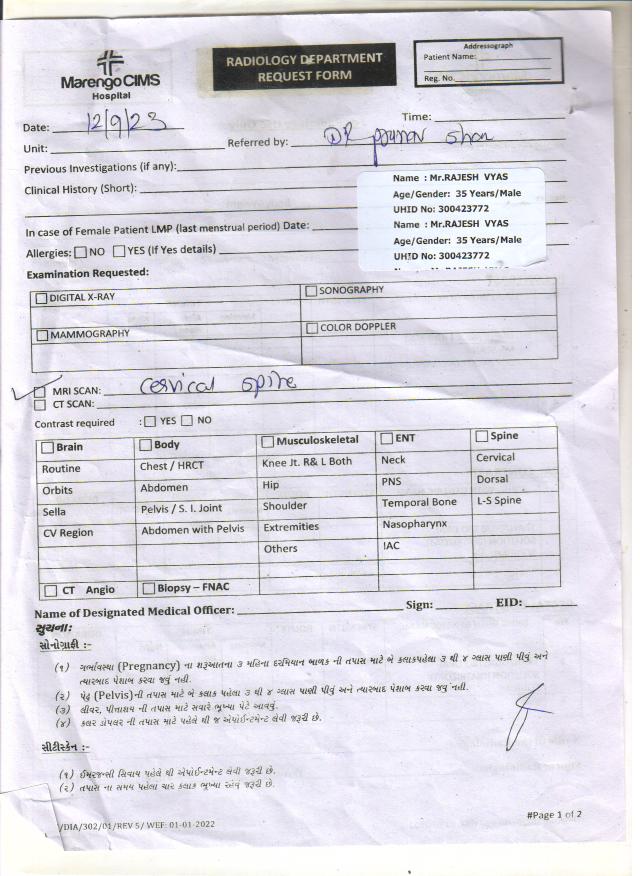 MarengoCIMS
Hospital
RADIOLOGY DEPARTMENT
REQUEST FORM
Addressograph
Patient Name:
Reg. No.
Date: 12/9/23
Time:
Unit:
Referred by: DR shah
Previous Investigations (if any):
Clinical History (Short):
Name : Mr.RAJESH VYAS
Age/Gender: 35 Years/Male
UHID No: 300423772
Name : Mr.RAJESH VYAS
Age/Gender: 35 Years/Male
UHID No: 300423772
In case of Female Patient LMP (last menstrual period) Date:
Allergies: NO YES (If Yes details)
Examination Requested:
DIGITAL X-RAY SONOGRAPHY
MAMMOGRAPHY COLOR DOPPLER
MRI SCAN: cervical spine
CT SCAN:
Contrast required : YES NO
Brain Body Musculoskeletal ENT Spine
Routine Chest / HRCT Knee Jt. R& L Both Neck Cervical
Orbits Abdomen Hip PNS Dorsal
Sella Pelvis / S. I. Joint Shoulder Temporal Bone L-S Spine
CV Region Abdomen with Pelvis Extremities Nasopharynx
Others IAC
CT Angio Biopsy – FNAC
Name of Designated Medical Officer: Sign: EID:
સુચના:
સોનોગ્રાફી :-
(૧) ગર્ભાવસ્થા (Pregnancy) ના શરૂઆતના ૩ મહિના દરમિયાન બાળક ની તપાસ માટે બે કલાકપહેલા ૩ થી ૪ ગ્લાસ પાણી પીવું અને
ત્યારબાદ પેશાબ કરવા જવું નહી.
(૨) પેઢુ (Pelvis)ની તપાસ માટે બે કલાક પહેલા ૩ થી ૪ ગ્લાસ પાણી પીવું અને ત્યારબાદ પેશાબ કરવા જવું નહી.
(૩) લીવર, પીત્તાશય ની તપાસ માટે સવારે ભુખ્યા પેટે આવવું.
(૪) કલર ડોપલર ની તપાસ માટે પહેલે થી જ એપોઈન્ટમેન્ટ લેવી જરૂરી છે.
સીટીસ્કેન :-
(૧) ઈમરજન્સી સિવાય પહેલે થી એપોઈન્ટમેન્ટ લેવી જરૂરી છે.
(૨) તપાસ ના સમય પહેલા ચાર કલાક ભુખ્યા રેવું જરૂરી છે.
/DIA/302/01/REV 5/ WEF: 01-01-2022
#Page 1 of 2